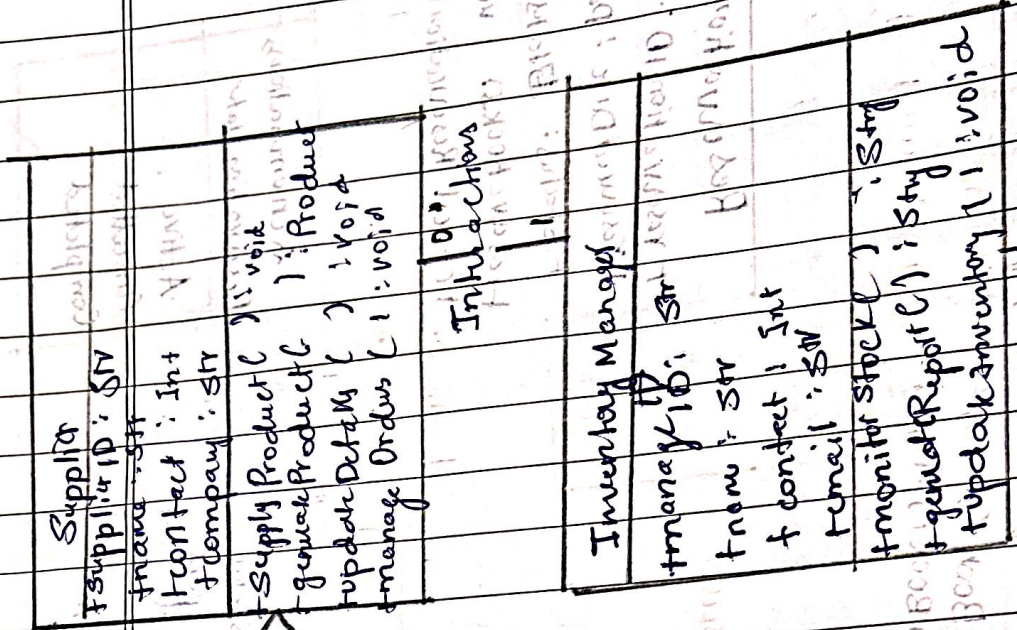 Supplier
+Suppli4ID: Str
+name: Str
+contact : Int
+company : Str
+Supply Product( ) : void
+genrateProduct( ) : Product
+update Details ( ) : void
+manage Orders ( ) : void
0
Interactions
1
Inventory Manager
+managerID: Str
+name : Str
+contact : Int
+email : Str
+monitorStock( ) : Str
+genrateReport( ) : Str
+updateInventory ( ) : void